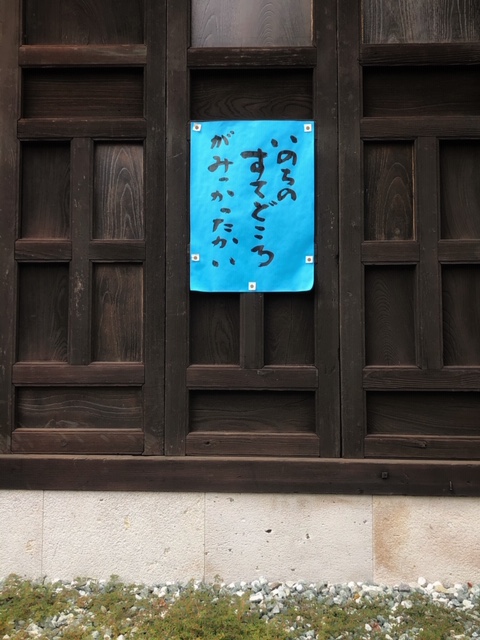 いのちの
すてどころ
がみつかったかい